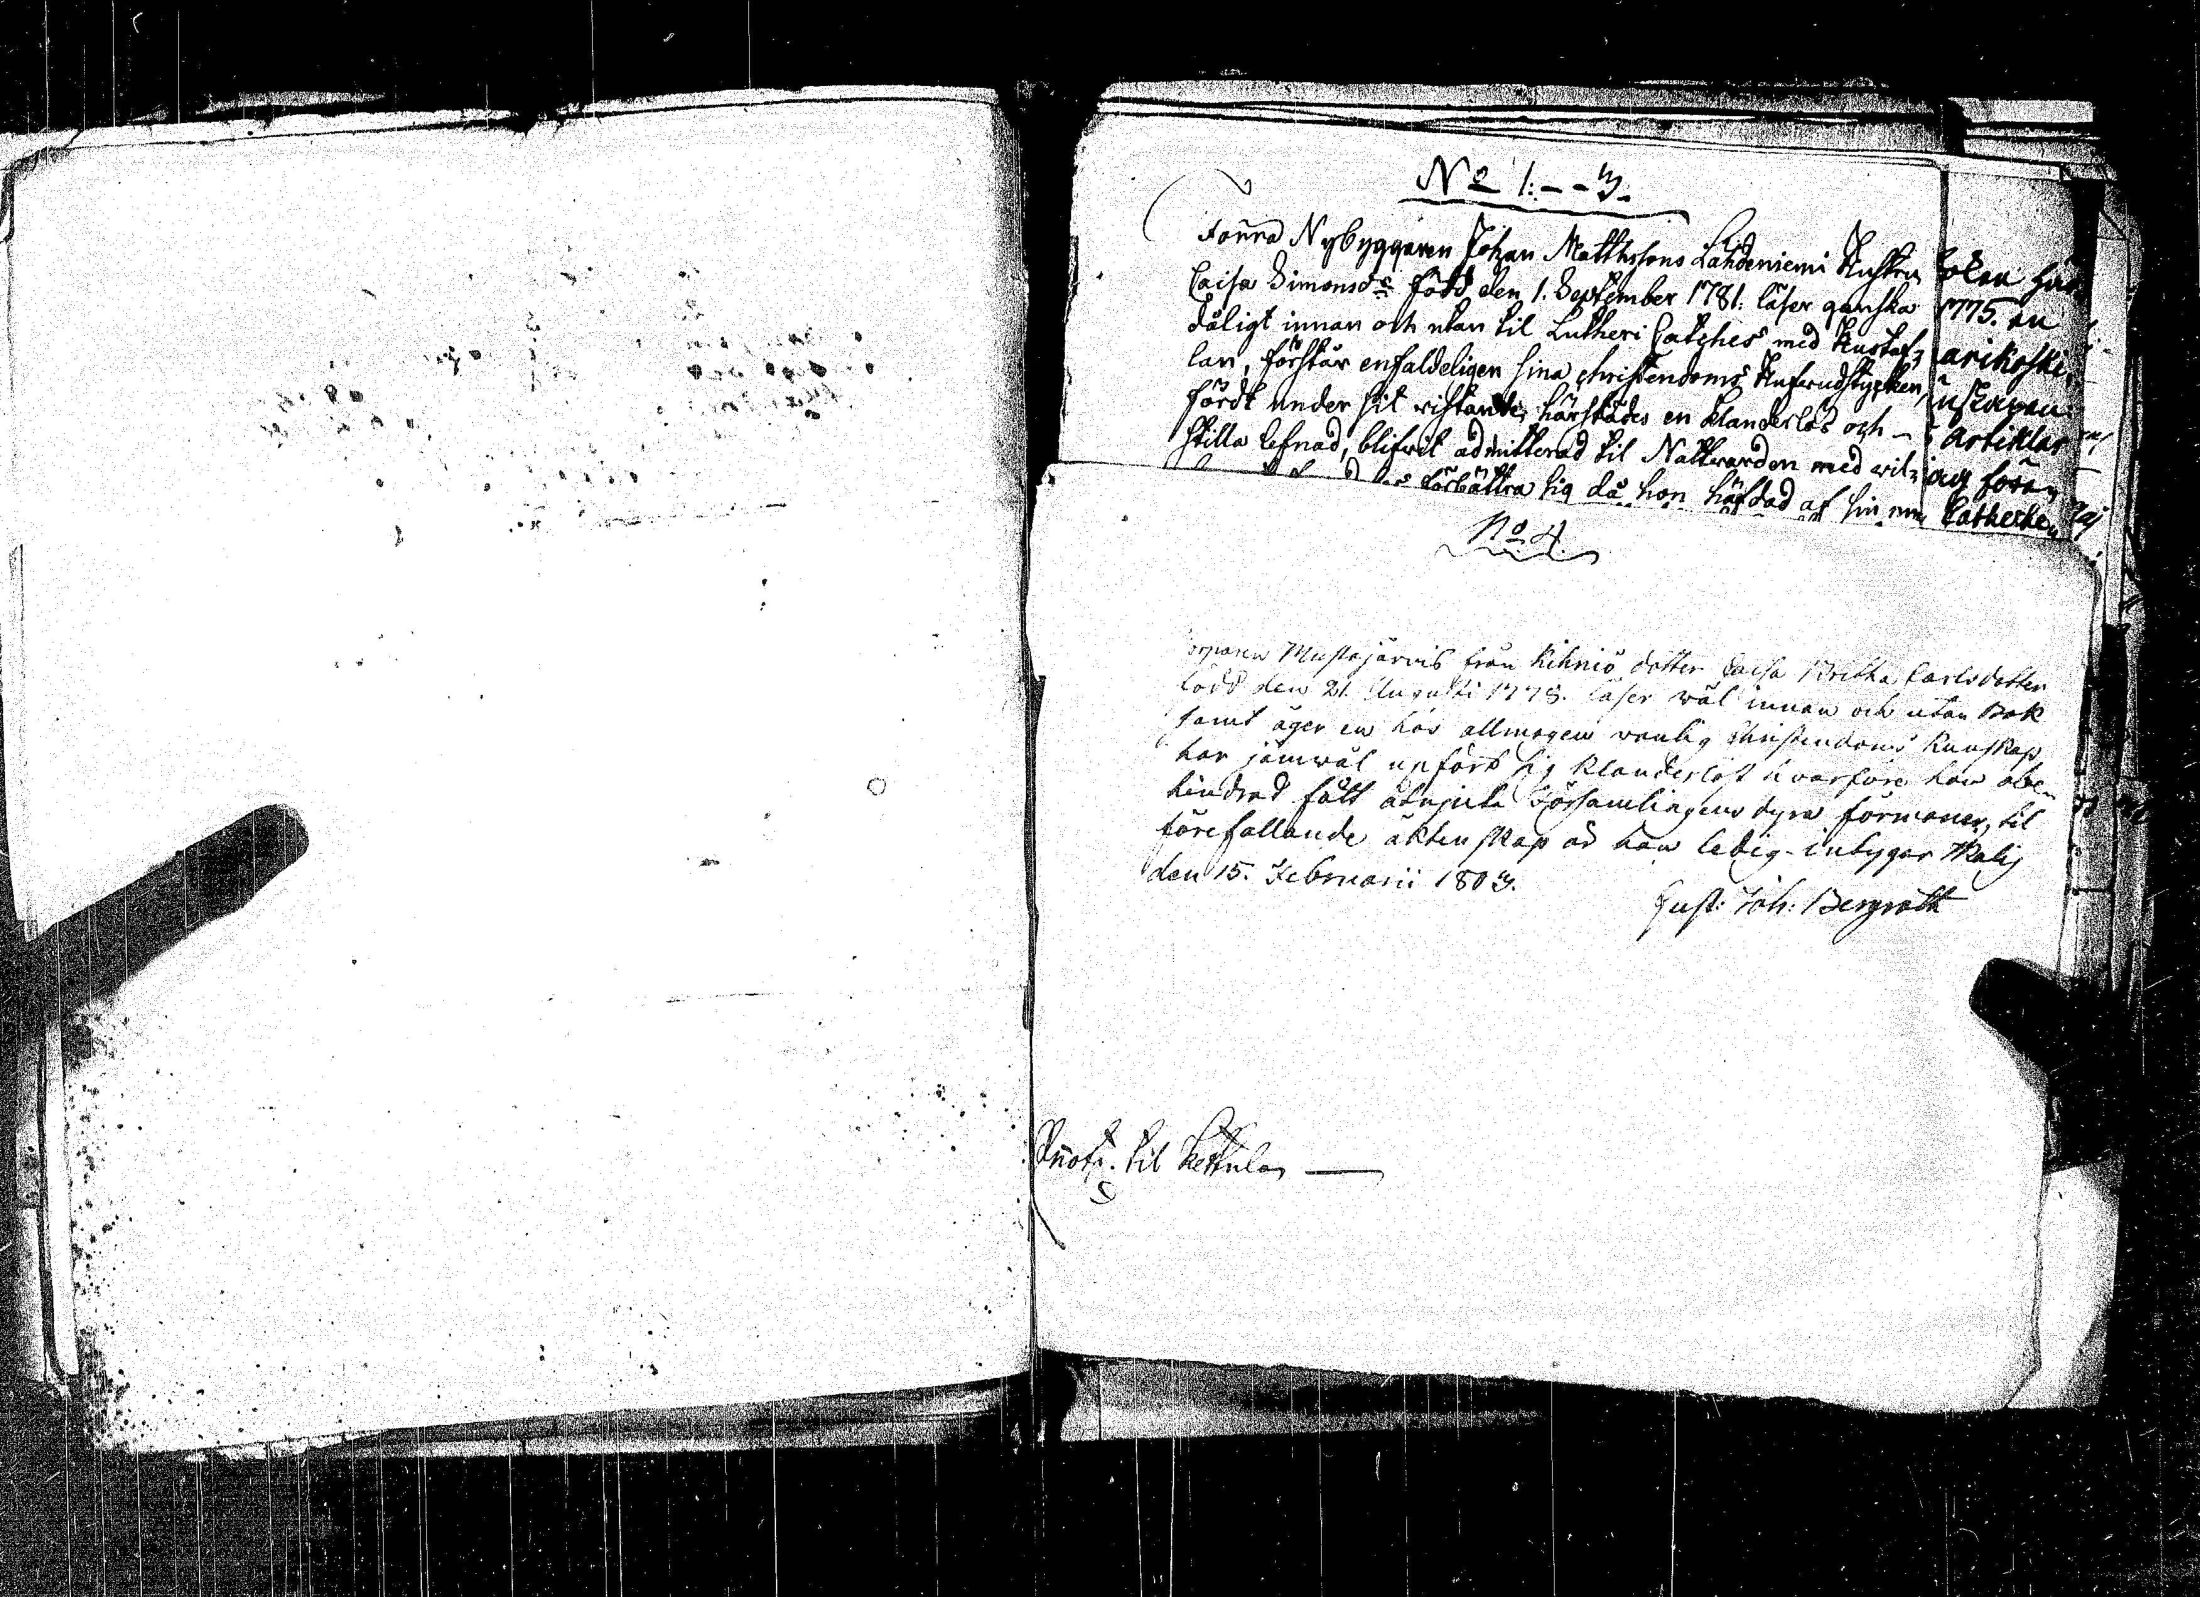 No 1: - - 3.
Förra Nybyggaren Johan Matthssons Lahdeniemi Hustru
Caisa Simonsdr född den 1. September 1781. läser ganska
dåligt innan och utan til Lutheri Catches med Hustaf-
lan, förstår enfaldeligen sina christendoms hufwudstycken,
fördt under sit wistande härstädes en klanderlös och -
stilla lefnad, blifwit admitterad til Nattwarden med wil-
förbättra sig då hon häfdad af sin
1775. en
arikoski,
artiklar
jag förä-
Catheche-
No 4.
Mustajärvis från Kihniö dotter Caisa Britha Carlsdotter
född den 21. Augusti 1778. läser wäl innan och utan Bok
samt äger en hos allmogen vanlig Christendoms kunskap,
har jämwäl upfört sig klanderlöst hvarföre hon obe-
hindrad fått åtnjuta Församlingens dyra förmoner, til
förefallande äktenskap är hon ledig - intygar Ikalis
den 15. Februarii 1803.
Gust: Joh: Bergroth
til Kettula